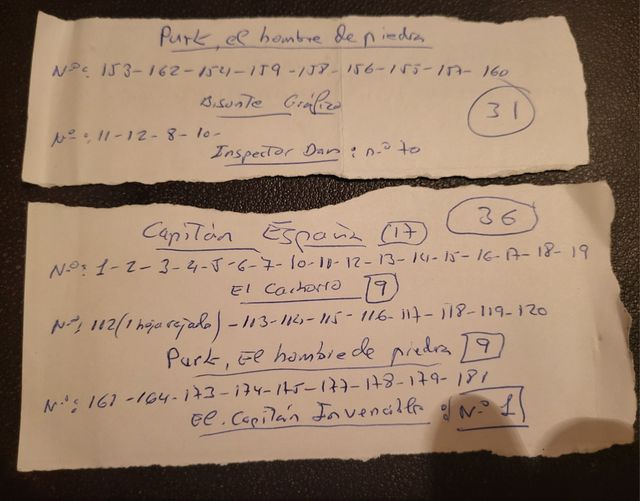 Purk, el hombre de piedra
Nºs: 153-162-154-159-158-156-155-157-160
Bisonte Gráfico
31
Nºs: 11-12-8-10-
Inspector Dan: nº 70
36
Capitán España 17
Nºs: 1-2-3-4-5-6-7-10-11-12-13-14-15-16-17-18-19
El Cachorro 9
Nºs: 112 (1 hoja rajada) -113-114-115-116-117-118-119-120
Purk, El hombre de piedra 9
Nºs: 161-164-173-174-175-177-178-179-181
El Capitán Invencible: Nº 1